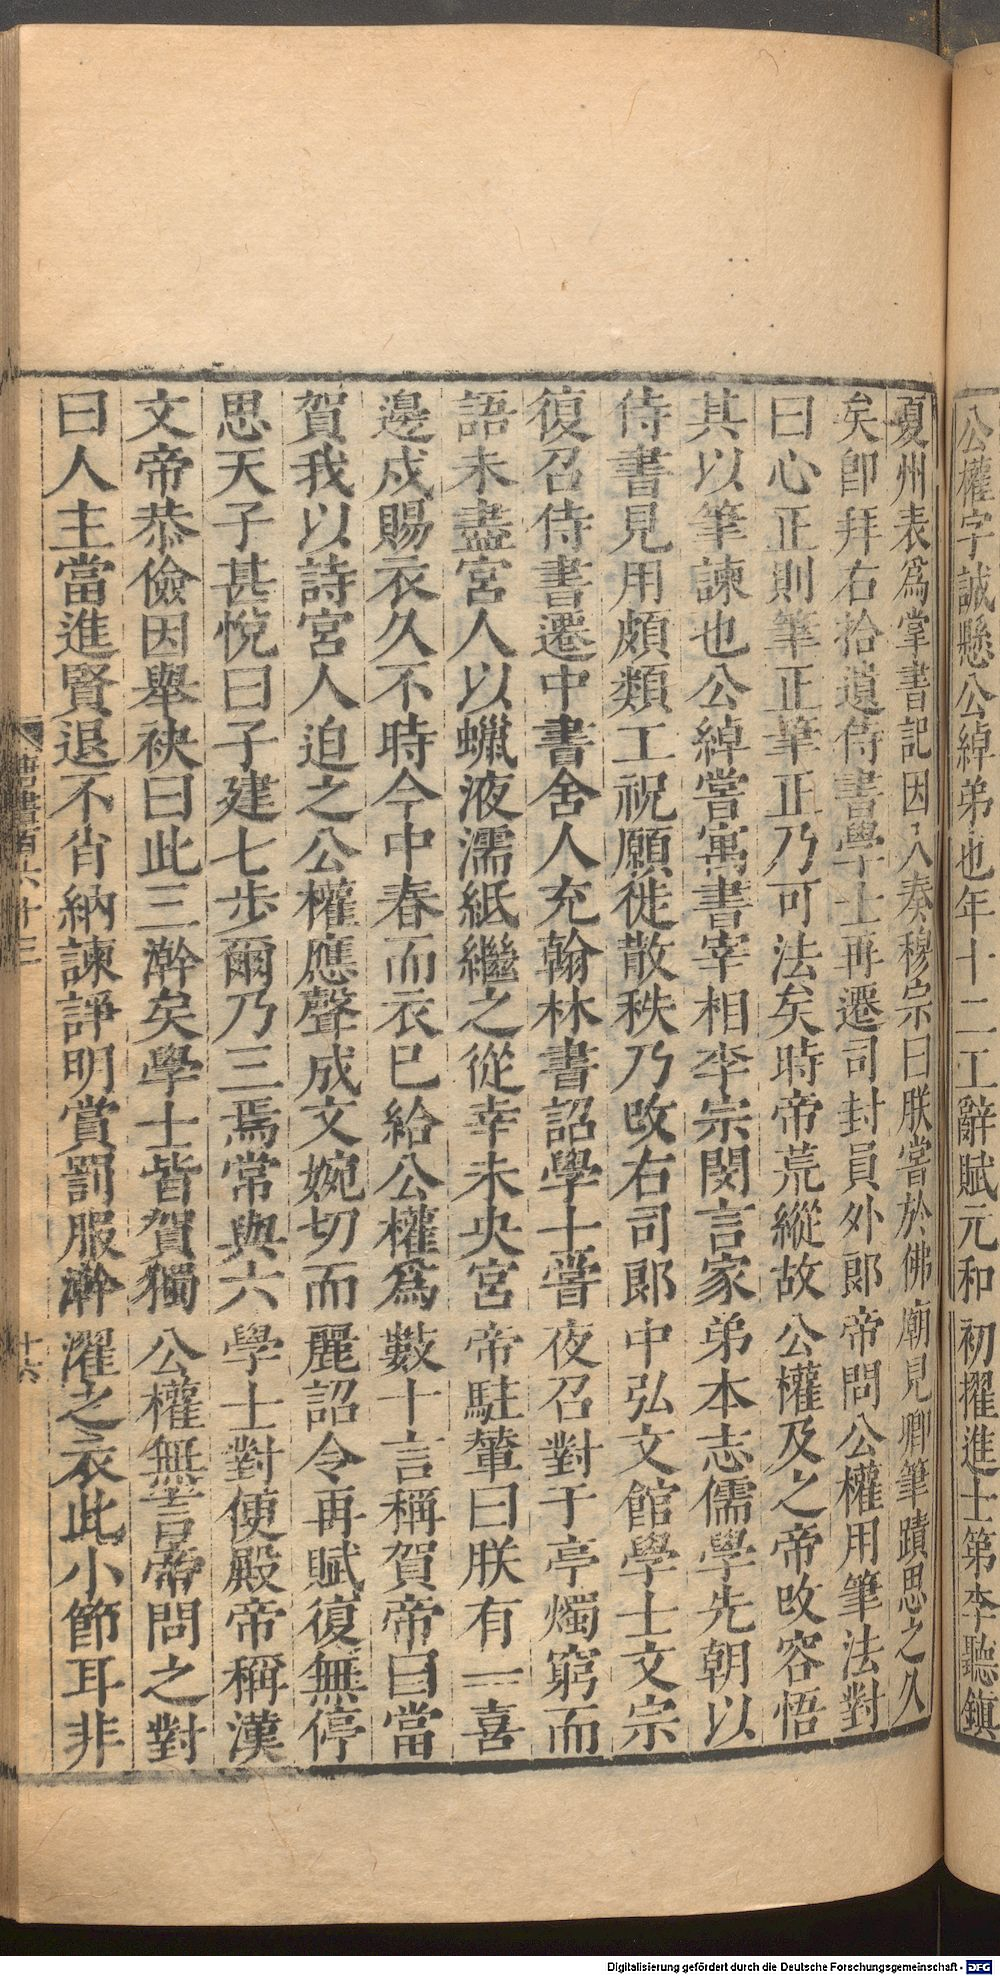 公權字誠懸公綽弟也年十二工辭賦元和初擢進士第李聽鎮
夏州表爲掌書記因入奏穆宗曰朕嘗於佛廟見卿筆蹟思之久
矣卽拜右拾遺侍書學士再遷司封員外郎帝問公權用筆法對
曰心正則筆正筆正乃可法矣時帝荒縱故公權及之帝改容悟
其以筆諫也公綽嘗寓書宰相李宗閔言家弟本志儒學先朝以
侍書見用頗類工祝願徙散秩乃改右司郎中弘文館學士文宗
復召侍書遷中書舍人充翰林書詔學士嘗夜召對子亭燭窮而
語未盡宮人以蠟液濡紙繼之從幸未央宮帝駐輦曰朕有一喜
邊戍賜衣久不時今中春而衣已給公權爲數十言稱賀帝曰當
賀我以詩宮人迫之公權應聲成文婉切而麗詔令再賦復無停
思天子甚悅曰子建七步爾乃三焉常與六學士對便殿帝稱漢
文帝恭儉因舉袂曰此三澣矣學士皆賀獨公權無言帝問之對
曰人主當進賢退不肖納諫諍明賞罰服澣濯之衣此小節耳非
唐書百六十三
十六
Digitalisierung gefördert durch die Deutsche Forschungsgemeinschaft - DFG